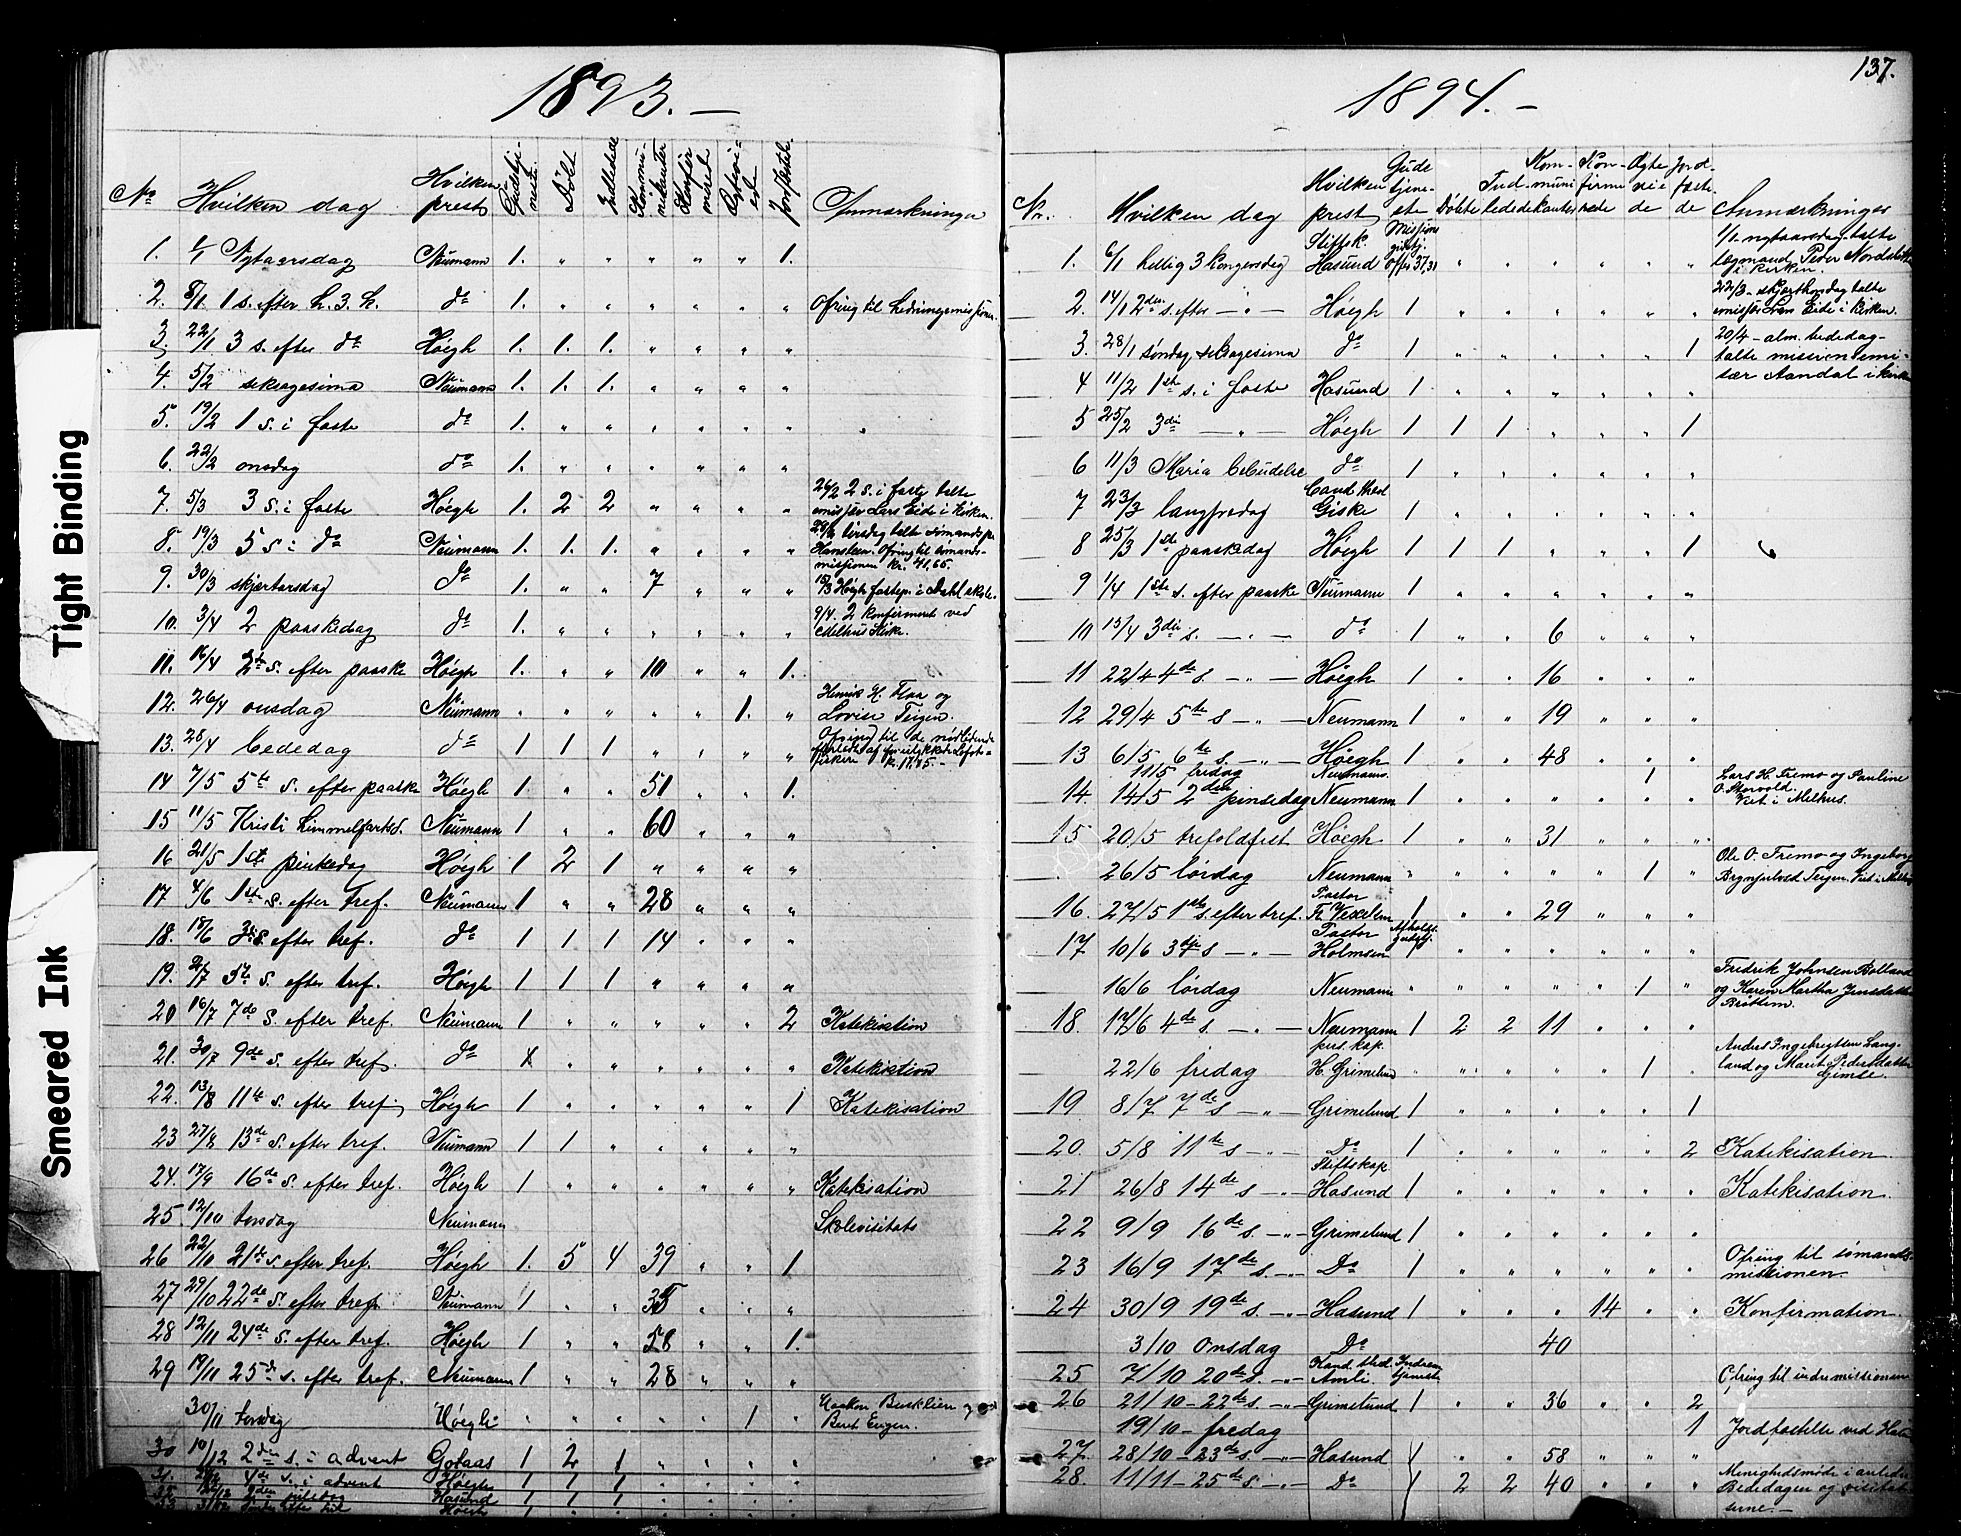 137.
1893. –
No Hvilken dag Hvilken prest Gudstjeneste Døbt Indledede Kommunikanter Konfirmerede Egteviede Jordfæstede Anmærkninger
1. 1/1 Nytaarsdag Neumann 1. " " " " " 1.
2. 8/1 1 s. efter h. 3. k. do 1. " " " " " " Ofring til hedningemissjonen.
3. 22/1 3 s. efter do Høegh 1. 1. 1. " " " "
4. 5/2 seksagesima Neumann 1. 1. 1. " " " "
5. 19/2 1 s. i faste do 1. " " " " " "
6. 22/2 onsdag do 1. " " " " " "
7. 5/3 3 s. i faste Høegh 1. 2 2 " " " " 26/2 2 s. i faste talte
emissær Lars Eide i kirken.
8. 19/3 5 s. i do Neumann 1. 1. 1. " " " " 28/2 tirsdag talte sømandspr.
Hansteen. Ofring til sømands-
missjonen kr. 41,65.
9. 30/3 skjærtorsdag do 1. " " 7 " " " 15/3 Høegh fastepr. i Dahl skole.
10. 3/4 2 paaskedag do 1. " " " " " " 9/4. 2 konfirmeret ved
Melhus Kirke.
11. 16/4 2de s. efter paaske Høegh 1. " " 10 " " 1.
12. 26/4 onsdag Neumann " " " " " 1. " Henrik H. Flaa og
Lovise Teigen.
13. 28/4 bededag do 1 1 1 " " " " Ofring til de nødlidende
efterladte af forulykkede Lofot-
fiskere kr. 17,85 –
14 7/5 5te s. efter paaske Høegh 1 " " 51 " " 1.
15 11/5 Kristi himmelfartsd. Neumann 1 " " 60 " " "
16 21/5 1ste pinsedag Høegh 1 2 1 " " " "
17 4/6 1ste s. efter tref. Neumann 1 " " 28 " " "
18. 18/6 3die s. efter tref. do 1 1 1 14 " " "
19. 2/7 5te s. efter tref. Høegh 1 1 1 " " " "
20 16/7 7de s. efter tref. Neumann 1 " " " " " 2 Katekisation
21. 30/7 9de s. efter tref. do 1 " " " " " " Katekisation
22. 13/8 11te s. efter tref. Høegh 1 " " " " " 1 Katekisation
23 27/8 13de s. efter tref. Neumann 1 1 " " " " "
24. 17/9 16de s. efter tref. Høegh 1 " " " " " " Katekisation
25 12/10 torsdag Neumann Skolevisitats
26 22/10 21de s. efter tref. Høegh 1. 5 4 39 " " 1
27 29/10 22de s. efter tref. Neumann 1 " " 35 " " "
28 12/11 24de s. efter tref. Høegh 1 " " 58 " " 1.
29 19/11 25de s. efter tref. Neumann 1 " " 28 " " "
30/11 torsdag Høegh " " " " " 1 " Haakon Busklien og
Berit Engen.
30 10/12 2den s. i advent Gotaas 1 2 1 " " " "
31. 4de s. i advent Høegh 1 1 1
2den juledag Hasund 1 1 1
31/12 Høegh 1 1 1
1894. –
Nr. Hvilken dag Hvilken prest Gudetjeneste Døbte Indledede Kommunikanter Konfirmerede Egteviede Jordfæstede Anmærkninger
1. 6/1 hellig 3 kongersdag Stiftsk. Hasund Missjons gudstj. Offer 37,31 " " " " " " 1/1 nytaarsdag talte
lægmand Peder Nordslette
i kirken.
2. 14/1 2den s. efter – " – Høegh 1 " " " " " " 22/3 – skjærthorsdag talte
emissær Lars Eide i kirken.
3. 28/1 søndag seksagesima do 1 " " " " " 1 20/4 – alm. bededag –
talte missionsemi-
sær Aandal i kirken
4 11/2 1ste s. i faste Hasund 1 " " " " " "
5 25/2 3die – " – Høegh 1 1 1 " " " 1
6 11/3 Maria bebudelse do 1 " " " " " "
7 23/3 langfredag Cand theol Giske 1 " " " " " "
8 25/3 1ste paaskedag Høegh 1 1 1 " " " 1
9 1/4 1ste s. efter paaske Neumann 1 " " " " " "
10 15/4 3die s. – " – do 1 " " 6 " " "
11 22/4 4de s. – " – Høegh 1 " " 16 " " "
12 29/4 5te s – " – Neumann 1 " " 19 " " "
13 6/5 6te s. – " – Høegh 1 " " 48 " " "
11/5 fredag Neumann 1 Lars H. Tremo og Pauline
O. Storvold.
Viet i Melhus.
14. 14/5 2den pinsedag Neumann 1 " " " " "
15 20/5 trefoldfest Høegh 1 " " 31 " " "
26/5 lørdag Neumann " " " " " 1 " Ole O. Tremo og Ingeborg
Brynjulvsd Teigen. Viet i Melhus
16. 27/5 1ste s. efter tref. Pastor Fr. Vexelsen 1 " " 29 " " "
17 10/6 3die s – " – Pastor Holmsen Afholdt. gudstj. 1 " " " " " "
16/6 lørdag Neumann " " " " " 1 " Fredrik Johnsen Bolland
og Karen Martha Jensdatter
Brøttem.
18. 17/6 4de s. – " – Neumann 1 2 2 11 " " "
22/6 fredag pers. kap. H. Grimelund " " " " " 1 " Anders Ingebrigtsen Lang-
land og Marit Pedersdatter
Gimse.
19 8/7 7de s – " – Grimelund 1 " " " " " 1
20. 5/8 11te s – " – Do 1 " " " " " 2 Katekisation.
21 26/8 14de s – " – Stiftskap Hasund 1 " " " " " " Katekisation.
22 9/9 16de s. – " – Grimelund 1 " " " " " "
23 16/9 17de s. – " – Do 1 " " " " " " Ofring til sømands-
missionen.
24 30/9 19de s. – " – Hasund 1 " " " 14 " " Konfirmation.
3/10 onsdag Do 40
25 7/10 20de s. – " – Kand. theol. Amli. Indrem. tjeneste Ofring til indremissionen
26 21/10 – 22de s. – " – Grimelund 1 " " 36 " " 2
19/10 – fredag 1 Jordfæstelse ved
27. 28/10 – 23de s. – " – Hasund 1 " " 58 " " "
28. 11/11 – 25de s. – " – Do 1 2 2 40 " " " Menighedsmøde i anledn.
Bededagen og visitat-
serne. –
Tight Binding
Smeared Ink